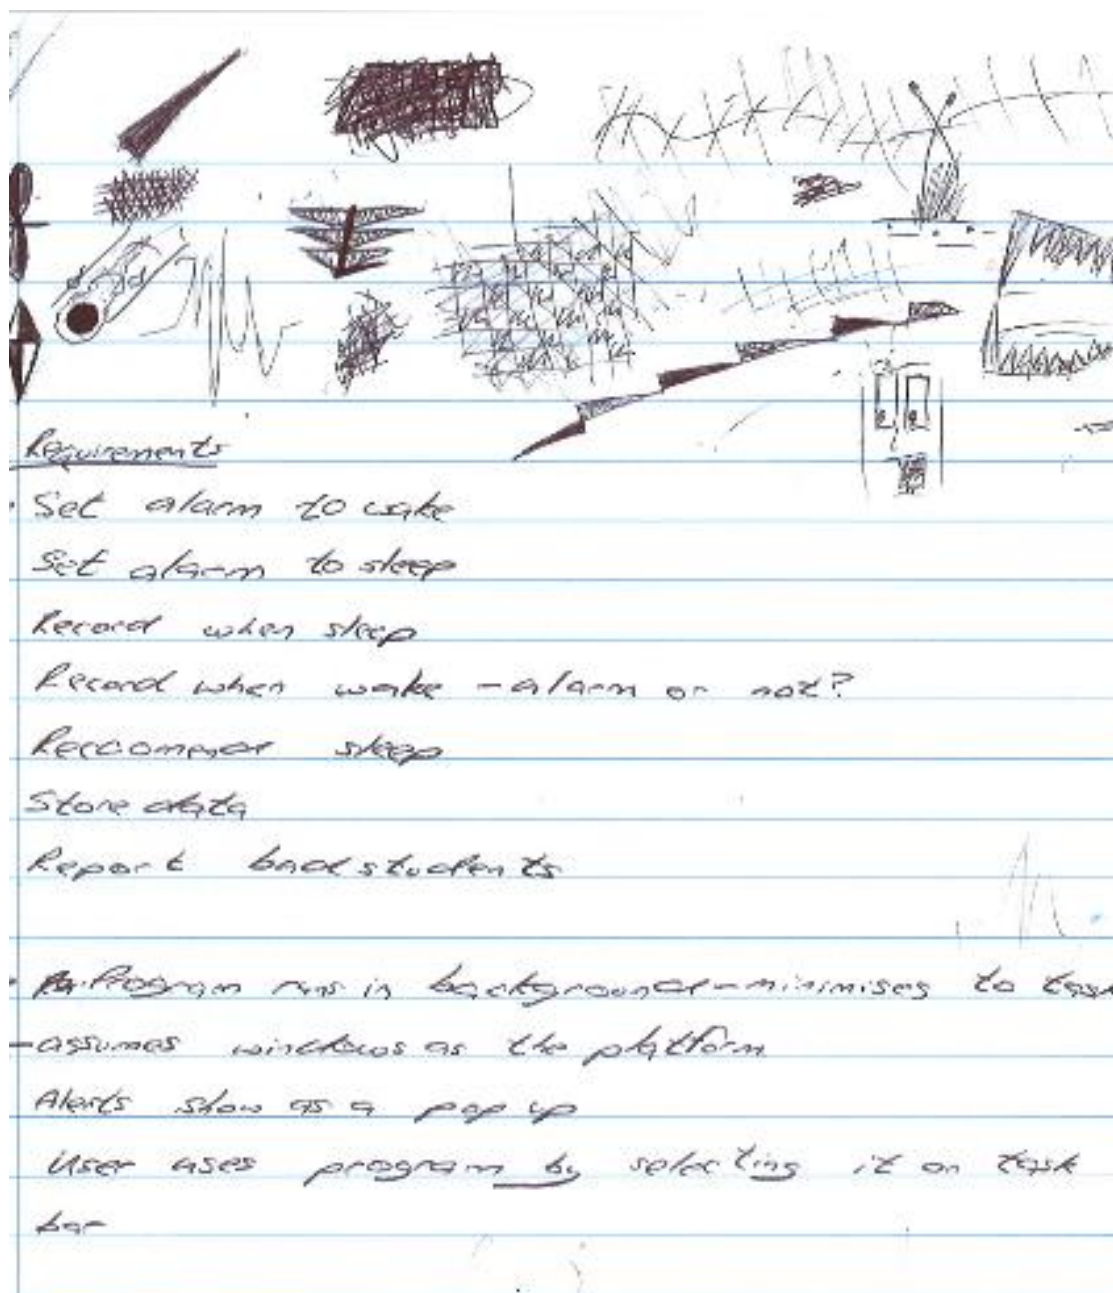 Requirements
Set alarm to wake
Set alarm to sleep
Record when sleep
Record when wake - alarm or not?
Reccomend sleep
Store data
Report back students
Program runs in background - minimises to task
- assumes windows as the platform
Alerts show as a pop up
User uses program by selecting it on task
bar